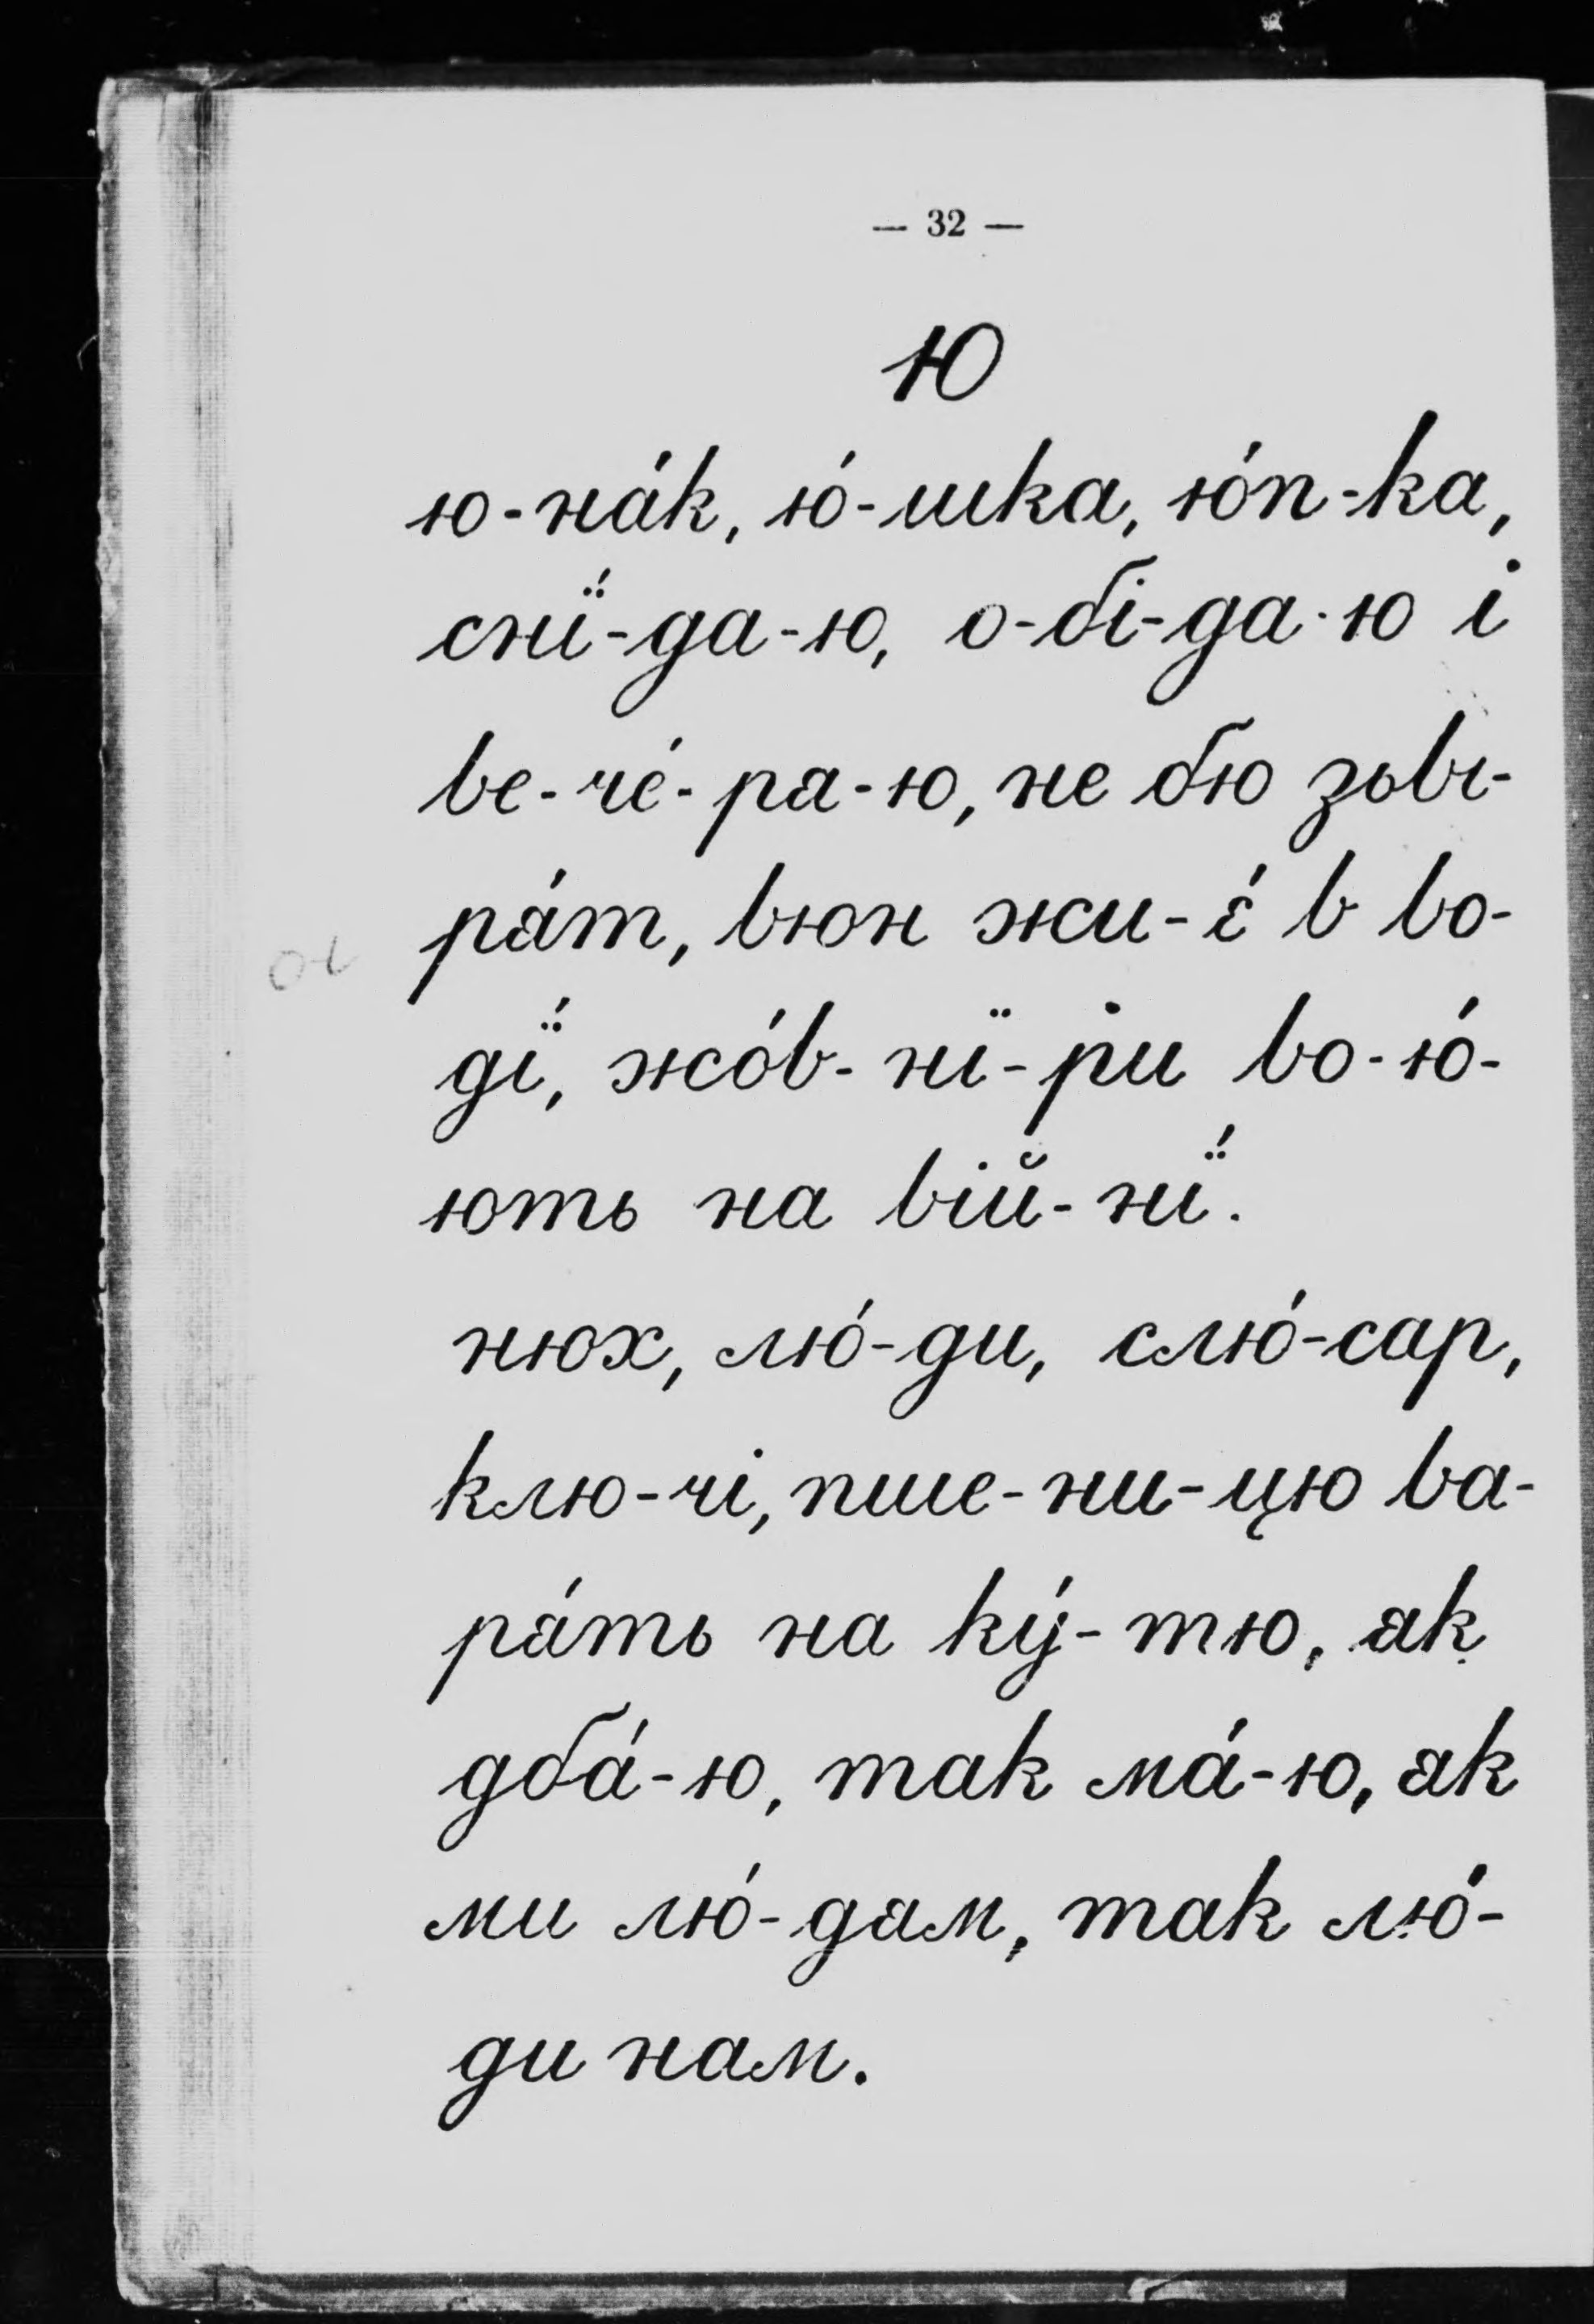 — 32 —
ю
ю-на́к, ю́-шка, ю́п-ка,
снї́-да-ю, о-бі-да-ю і
ве-че́-ра-ю, не бю зьві-
ря́т, вюн жи-є́ в во-
дї́, жо́в-нї-ри во-ю́-
ють на вій-нї́.
нюх, лю́-ди, слю́-сар,
клю-чі, пше-ни-цю ва-
ря́ть на ку́-тю, як
дба́-ю, так ма́-ю, як
ми лю́-дям, так лю́-
ди нам.